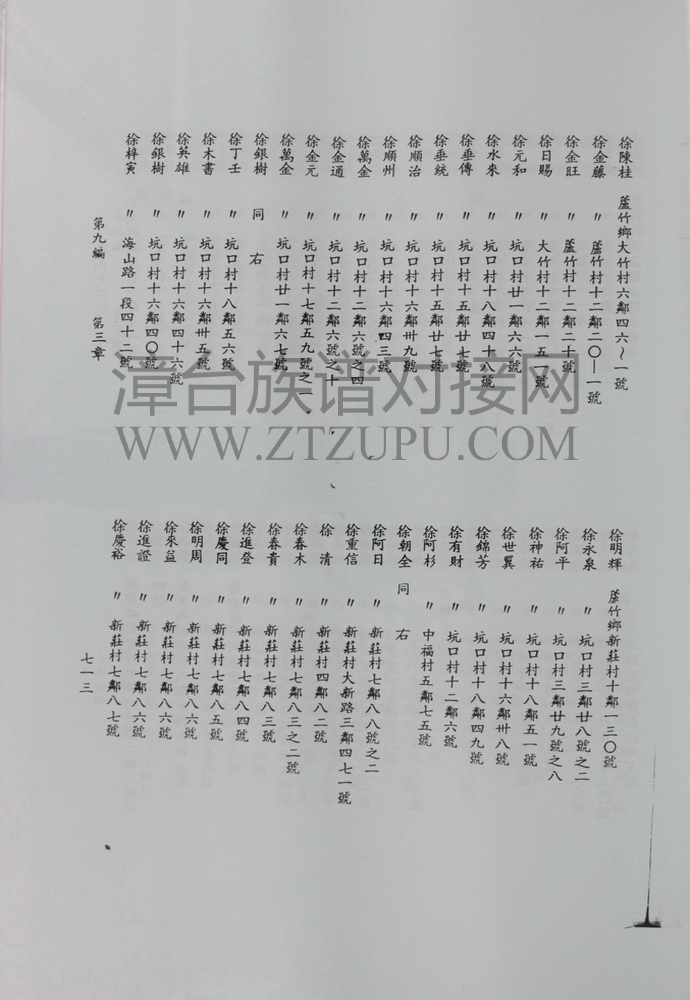 徐陳桂 蘆竹鄉大竹村六鄰四六~一號
徐金藤 〃 蘆竹村十二鄰二〇—一號
徐金旺 〃 蘆竹村十二鄰二十號
徐日賜 〃 大竹村十二鄰一五一號
徐元和 〃 坑口村廿一鄰六六號
徐水來 〃 坑口村十八鄰四十八號
徐垂傳 〃 坑口村十五鄰廿七號
徐垂統 〃 坑口村十五鄰廿七號
徐順治 〃 坑口村十六鄰卅九號
徐順州 〃 坑口村十六鄰四三號
徐萬金 〃 坑口村十二鄰六號之四
徐金通 〃 坑口村十二鄰六號之十
徐金元 〃 坑口村十七鄰五九號之一
徐萬金 〃 坑口村廿一鄰六七號
徐銀樹 同右
徐丁壬 〃 坑口村十八鄰五六號
徐木書 〃 坑口村十六鄰卅五號
徐英雄 〃 坑口村十六鄰四十六號
徐銀樹 〃 坑口村十六鄰四〇號
徐梓寅 〃 海山路一段四十二號
徐明輝 蘆竹鄉新莊村十鄰一三〇號
徐永泉 〃 坑口村三鄰廿八號之二
徐阿平 〃 坑口村三鄰廿九號之八
徐神祐 〃 坑口村十八鄰五一號
徐世異 〃 坑口村十六鄰卅八號
徐錦芳 〃 坑口村十八鄰四九號
徐有財 〃 坑口村十二鄰六號
徐阿杉 〃 中福村五鄰七五號
徐朝全 同右
徐阿日 〃 新莊村七鄰八八號之二
徐重信 〃 新莊村大新路三鄰四七一號
徐清 〃 新莊村四鄰八二號
徐春木 〃 新莊村七鄰八三之二號
徐春貴 〃 新莊村七鄰八三號
徐進登 〃 新莊村七鄰八四號
徐慶同 〃 新莊村七鄰八五號
徐明周 〃 新莊村七鄰八六號
徐來益 〃 新莊村七鄰八六號
徐進證 〃 新莊村七鄰八六號
徐慶裕 〃 新莊村七鄰八七號
第九編 第三章
七一三
漳台族谱对接网
WWW.ZTZUPU.COM